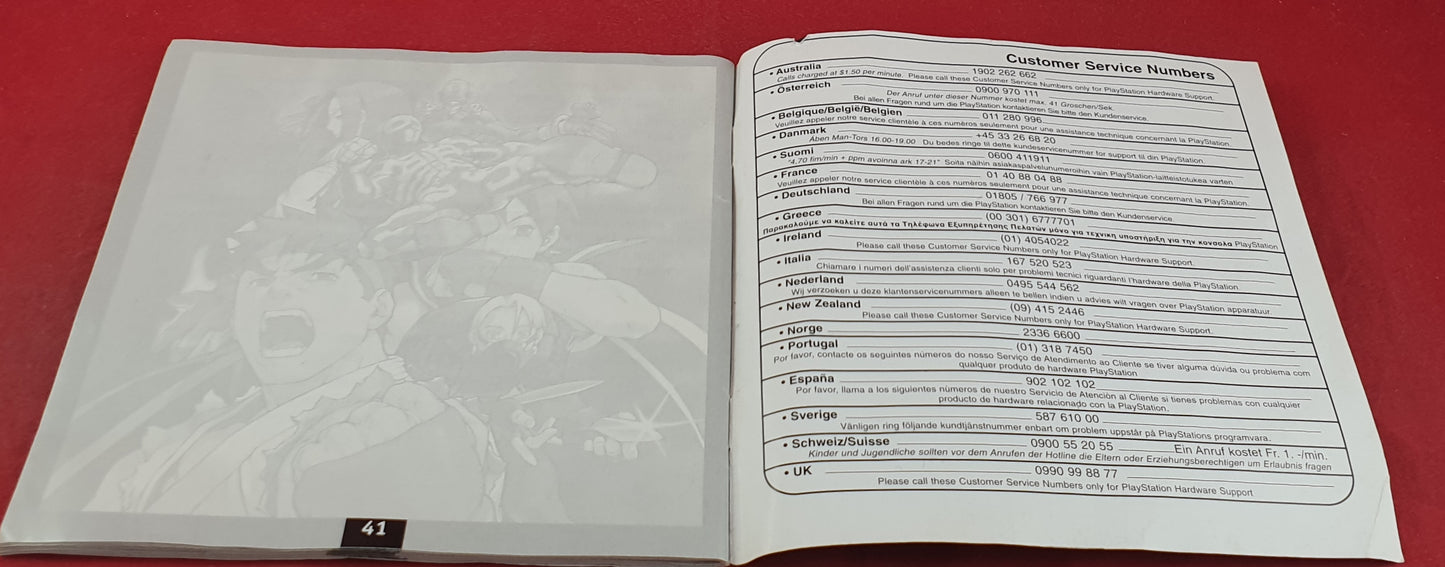 41
Customer Service Numbers
• Australia 1902 262 662
Calls charged at $1.50 per minute. Please call these Customer Service Numbers only for PlayStation Hardware Support.
• Österreich 0900 970 111
Der Anruf unter dieser Nummer kostet max. 41 Groschen/Sek.
Bei allen Fragen rund um die PlayStation kontaktieren Sie bitte den Kundenservice.
• Belgique/België/Belgien 011 280 996
Veuillez appeler notre service clientèle à ces numèros seulement pour une assistance technique concernant la PlayStation.
• Danmark +45 33 26 68 20
Åben Man-Tors 16.00-19.00 Du bedes ringe til dette kundeservicenummer for support til din PlayStation.
• Suomi 0600 411911
"4.70 fim/min + ppm avoinna ark 17-21" Soita näihin asiakaspalvelunumeroihin vain PlayStation-laitteistotukea varten
• France 01 40 88 04 88
Veuillez appeler notre service clientèle à ces numèros seulement pour une assistance technique concernant la PlayStation.
• Deutschland 01805 / 766 977
Bei allen Fragen rund um die PlayStation kontaktieren Sie bitte den Kundenservice
• Greece (00 301) 6777701
Παρακαλούμε να καλείτε αυτά τα Τηλέφωνα Εξυπηρέτησης Πελατών μόνο για τεχνικη υποστήριξη για την κονσολα PlayStation
• Ireland (01) 4054022
Please call these Customer Service Numbers only for PlayStation Hardware Support.
• Italia 167 520 523
Chiamare i numeri dell'assistenza clienti solo per problemi tecnici riguardanti l'hardware della PlayStation.
• Nederland 0495 544 562
Wij verzoeken u deze klantenservicenummers alleen te bellen indien u advies wilt vragen over PlayStation apparatuur.
• New Zealand (09) 415 2446
Please call these Customer Service Numbers only for PlayStation Hardware Support.
• Norge 2336 6600
• Portugal (01) 318 7450
Por favor, contacte os seguintes números do nosso Serviço de Atendimento ao Cliente se tiver alguma dúvida ou problema com
qualquer produto de hardware PlayStation
• España 902 102 102
Por favor, llama a los siguientes números de nuestro Servicio de Atención al Cliente si tienes problemas con cualquier
producto de hardware relacionado con la PlayStation.
• Sverige 587 610 00
Vänligen ring följande kundtjänstnummer enbart om problem uppstår på PlayStations programvara.
• Schweiz/Suisse 0900 55 20 55 Ein Anruf kostet Fr. 1. -/min.
Kinder und Jugendliche sollten vor dem Anrufen der Hotline die Eltern oder Erziehungsberechtigen um Erlaubnis fragen
• UK 0990 99 88 77
Please call these Customer Service Numbers only for PlayStation Hardware Support